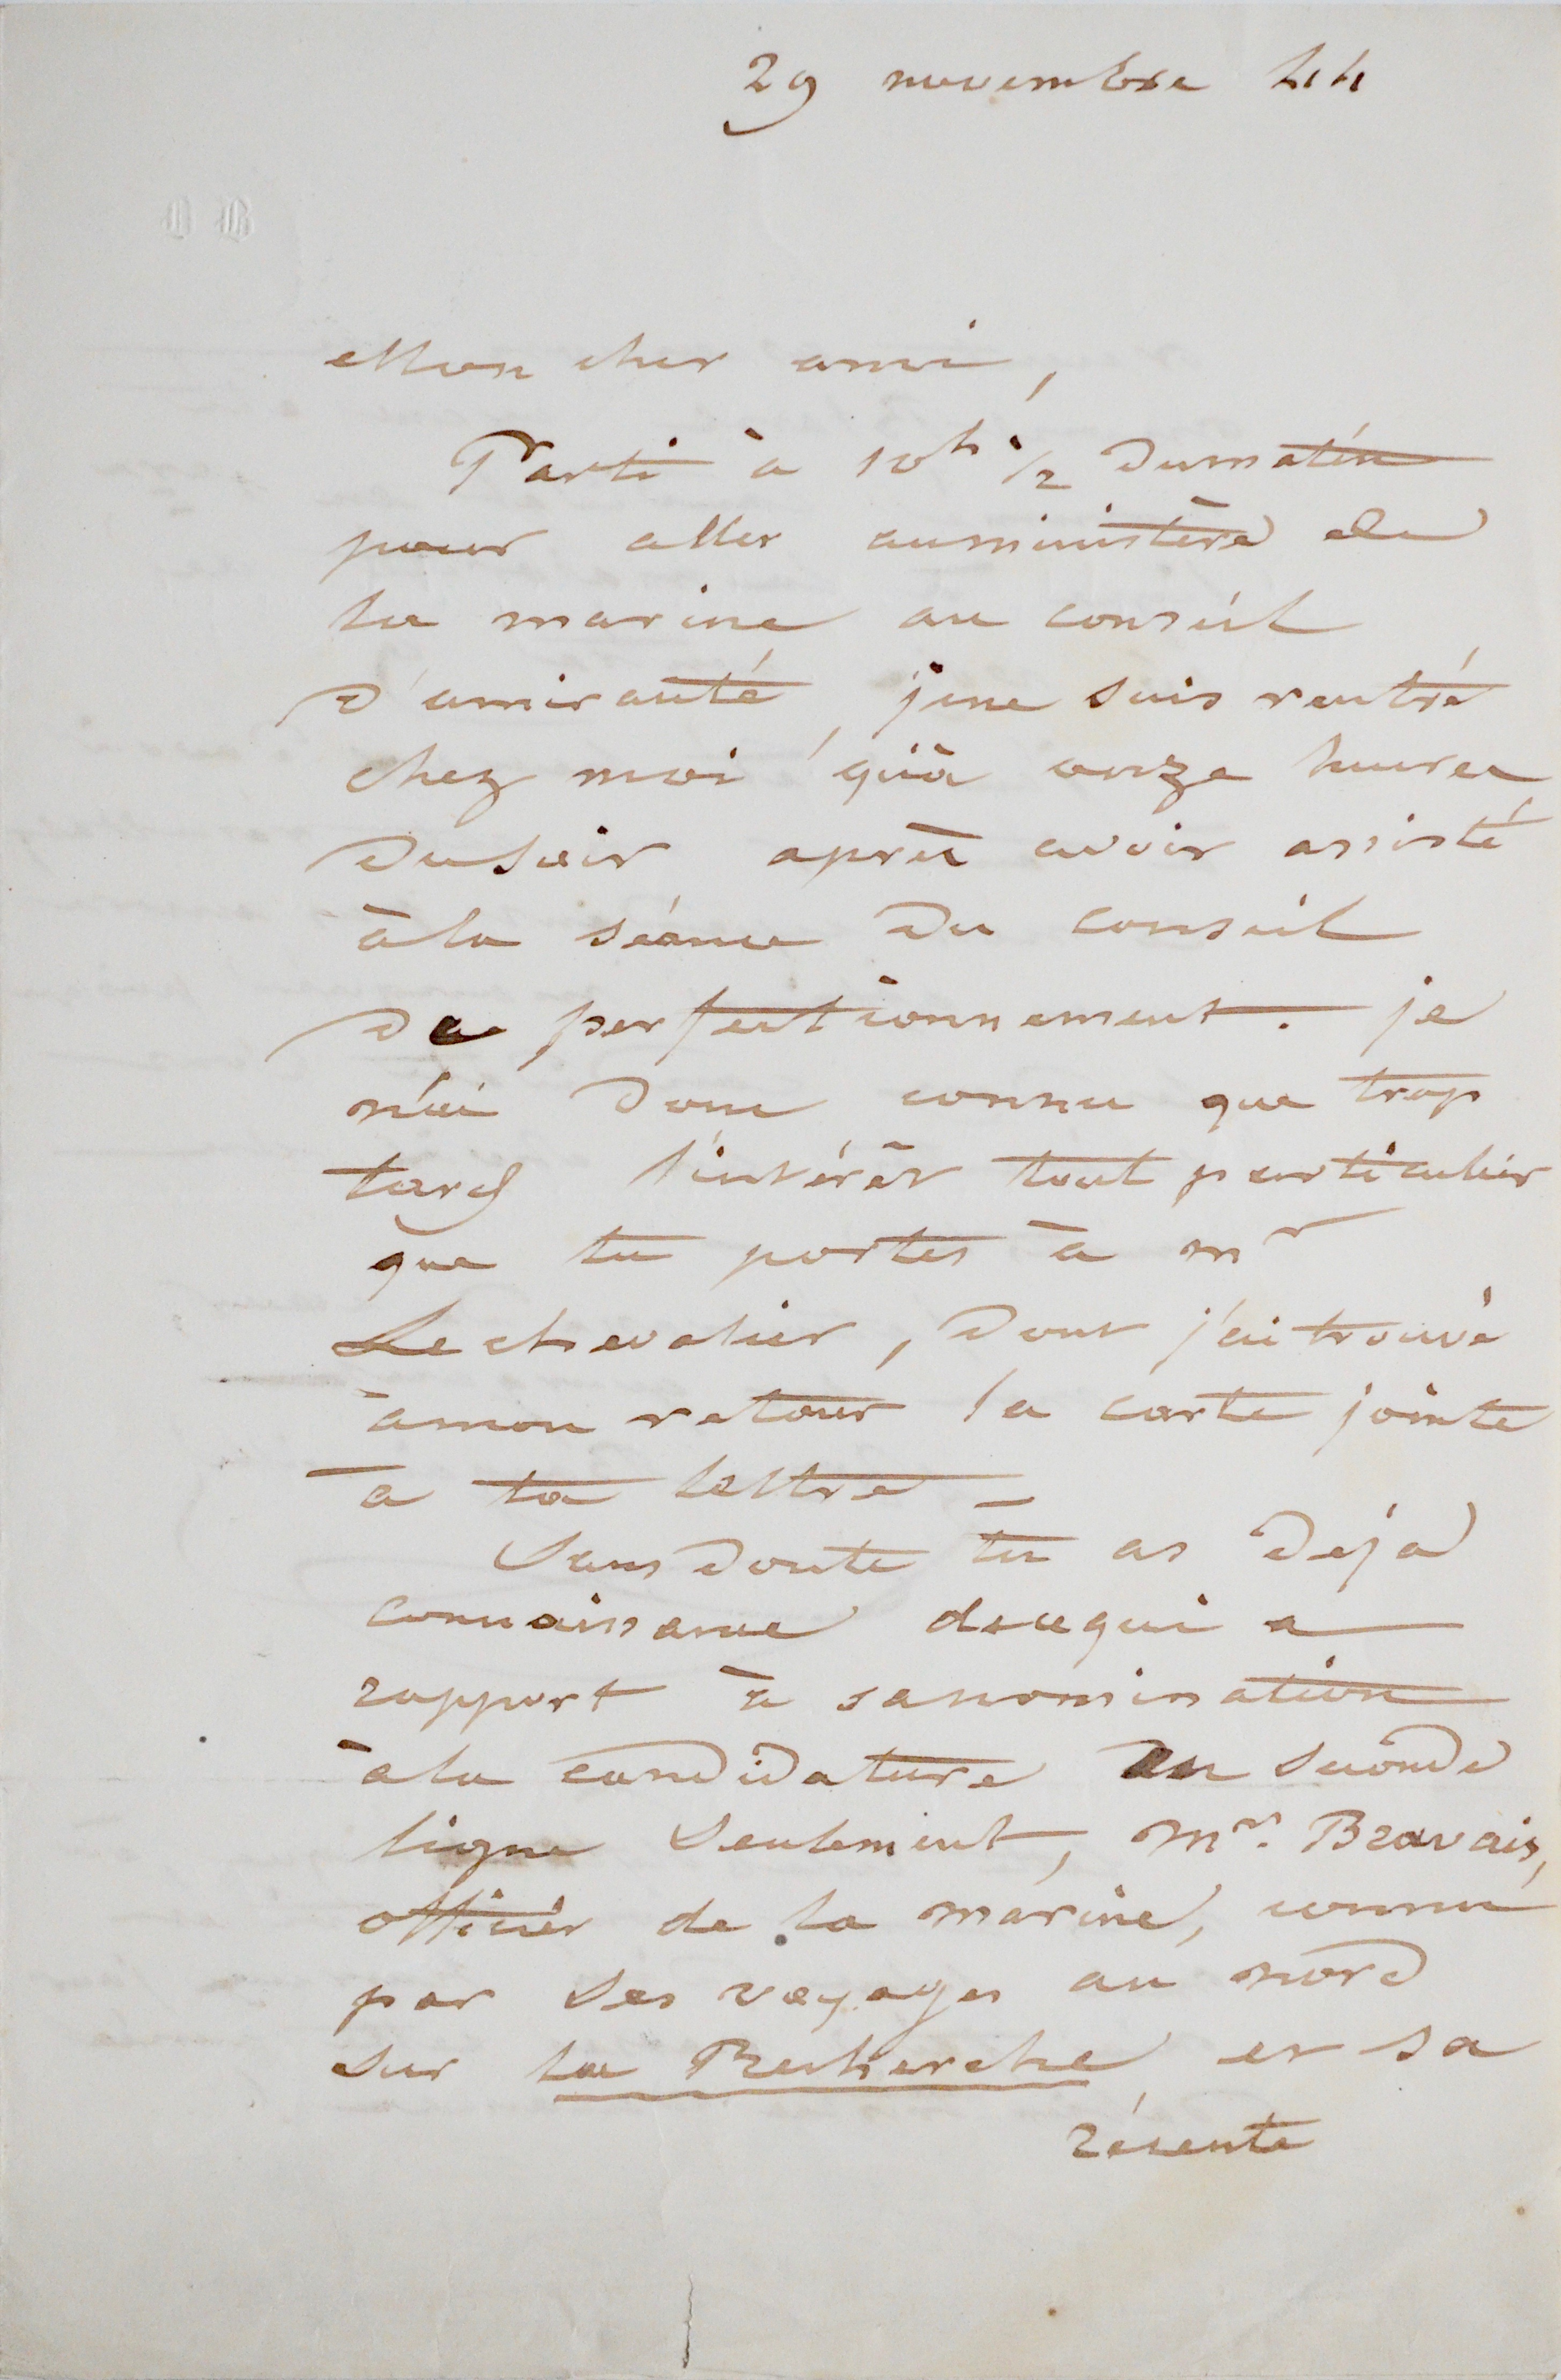 29 novembre 44
Mon cher ami,
Parti à 10h 1/2 du matin
pour aller au ministère de
la marine au conseil
d'amirauté, je ne suis rentré
chez moi qu'à onze heures
du soir après avoir assisté
à la séance du conseil
de perfectionnement. je
n'ai donc connu que trop
tard l'intérêt tout particulier
que tu portes à mr
Le chevalier, dont j'ai trouvé
à mon retour la carte jointe
à ta lettre —
Sans doute tu as déjà
connaissance de ce qui a
rapport à sa nomination
à la candidature en seconde
ligne seulement, Mr. Bravais,
officier de la marine, connu
par ses voyages au nord
sur la Recherche et sa
récente